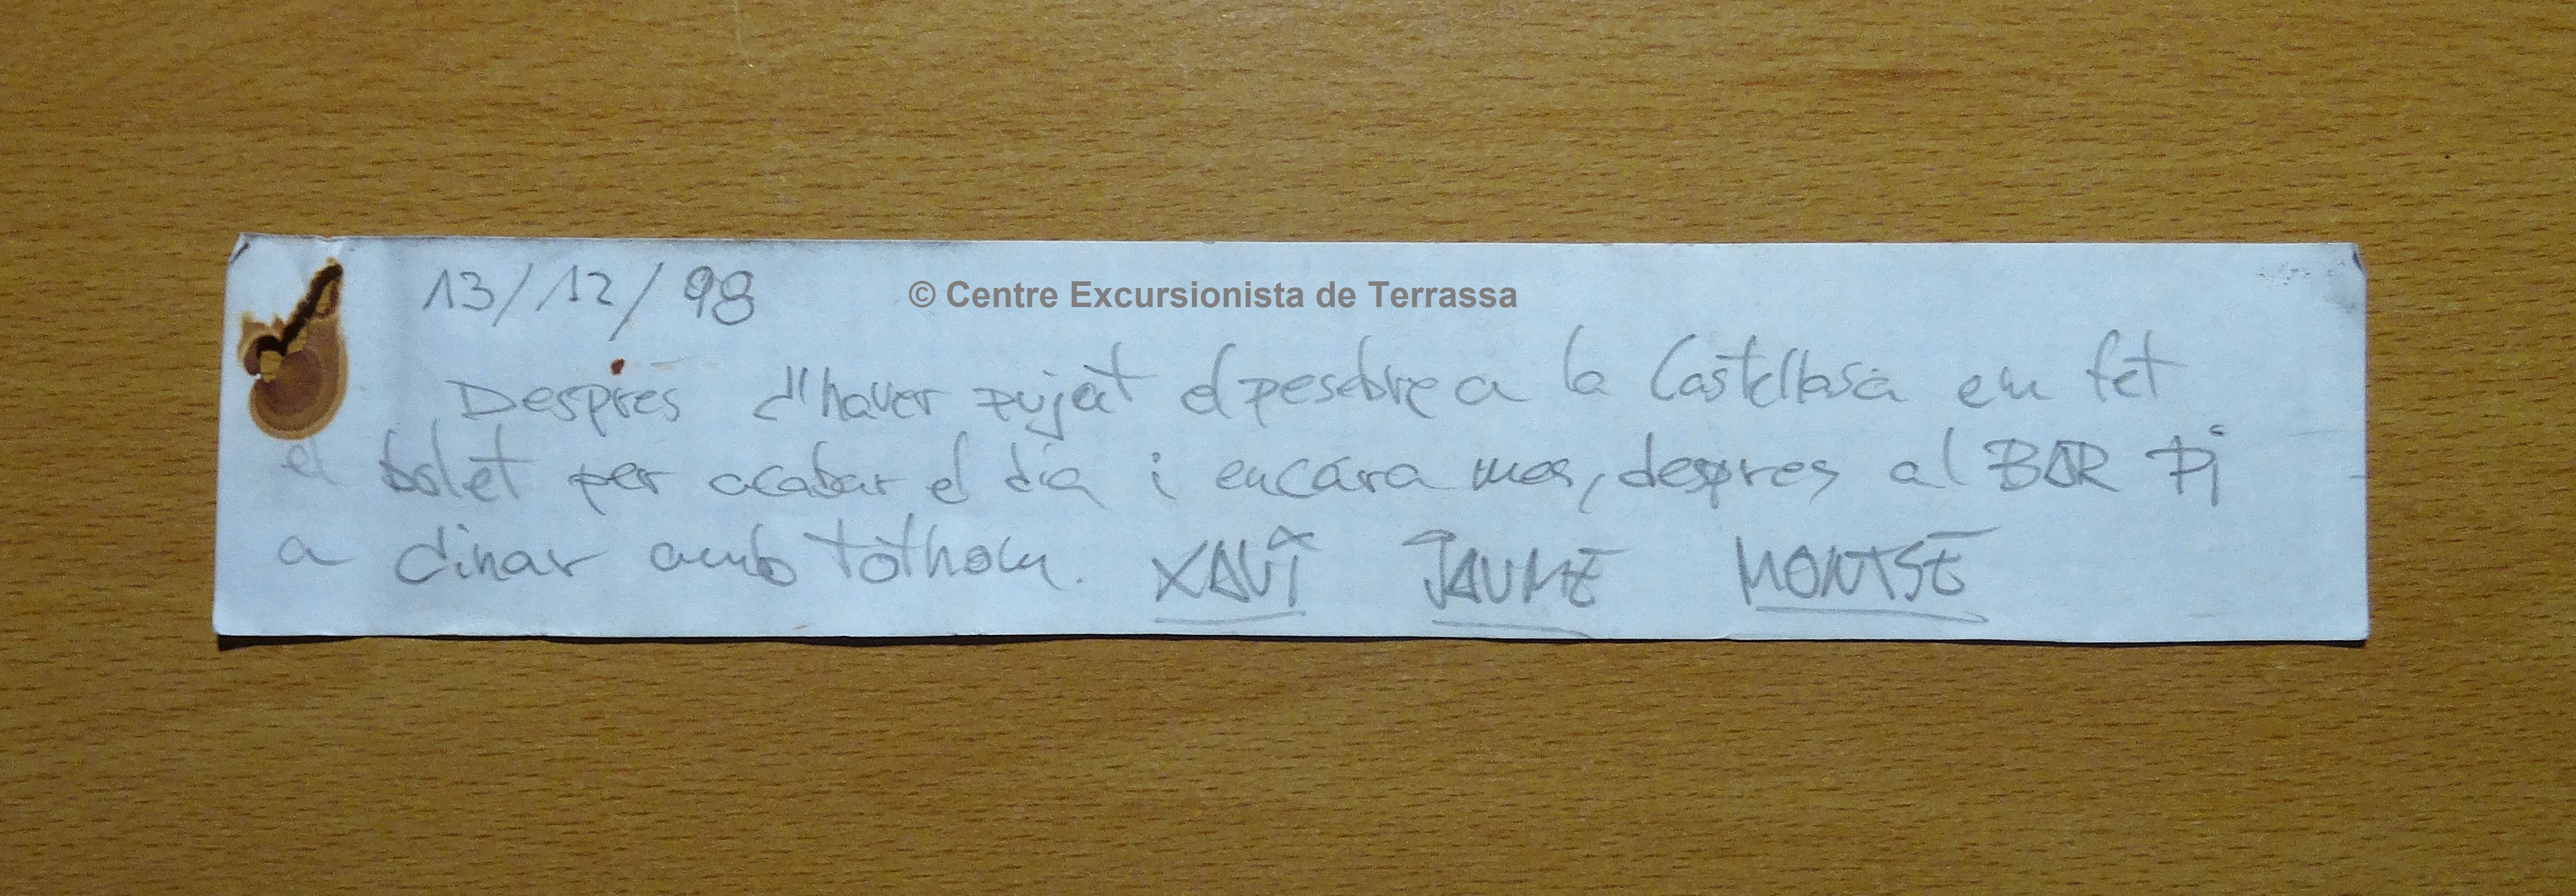 13/12/98
© Centre Excursionista de Terrassa
Despres d'haver pujat el pesebre a la Castellasa em fet
el bolet per acabar el dia i encara mes, despres al BAR Pi
a dinar amb tothom. XAVI JAUME MONTSE